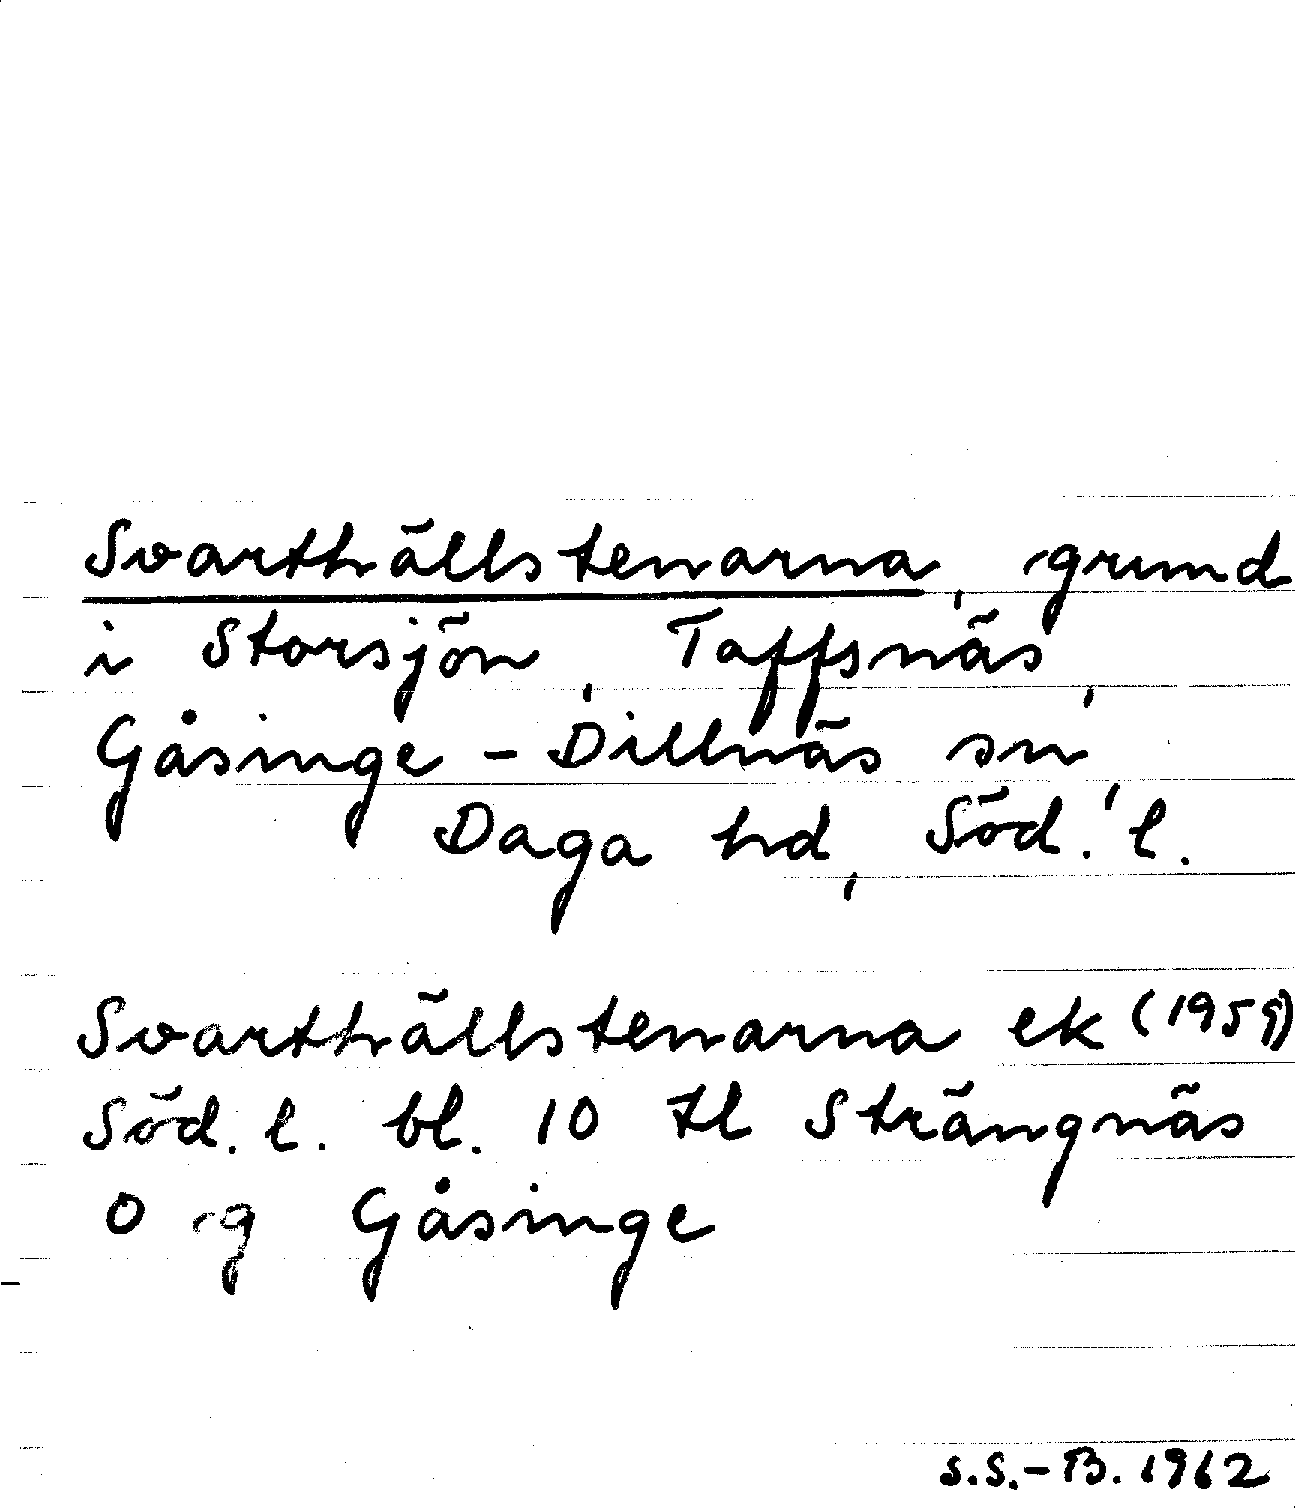 Svarthällstenarna, grund
i Storsjön, Taffsnäs,
Gåsinge - Dillnäs sn,
Daga hd, Söd. l.
Svarthällstenarna ek (1959)
Söd. l. bl. 10 tl Strängnäs
O g Gåsinge
S.S.-B. 1962